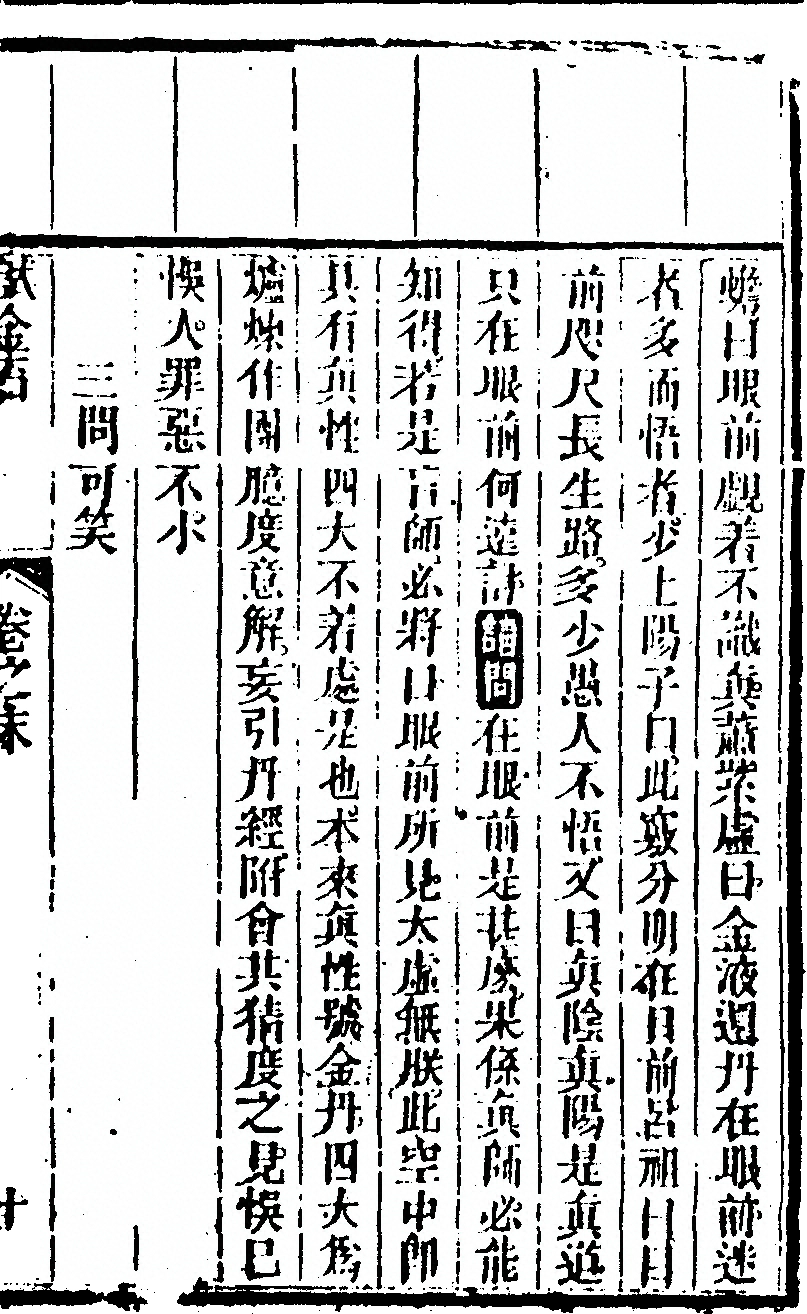 蟾曰眼前覷著不識真蕭紫虛曰金液還丹在眼前迷
者多而悟者少上陽子曰此竅分明在目前呂祖曰目
前咫尺長生路多少愚人不悟又曰真陰真陽是真道
只在眼前何遠討請問在眼前是甚麼果係真師必能
知得若是盲師必將曰眼前所見太虛無朕此空中卽
具有真性四大不著處是也本來真性號金丹四大爲
爐煉作團臆度意解妄引丹經附會共猜度之見悞已
悞人罪惡不小
三問可笑
試金石
卷之末
十